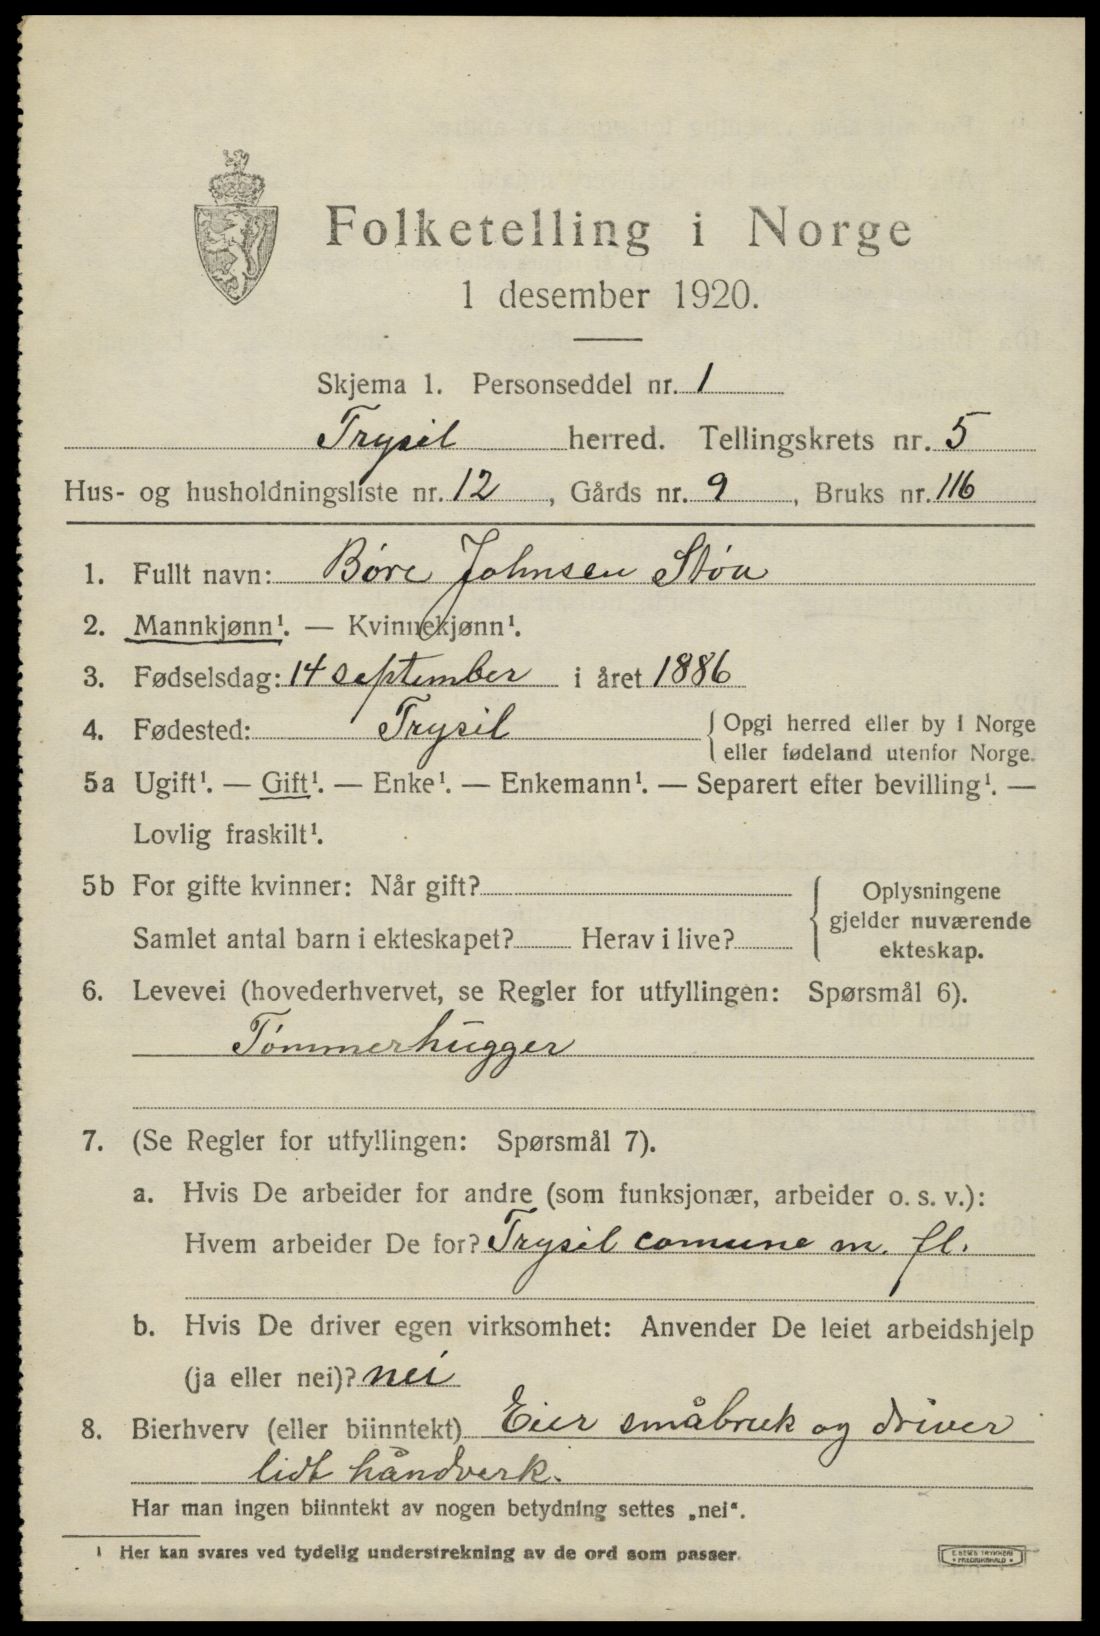 Folketelling i Norge
1 desember 1920.
Skjema 1. Personseddel nr. 1
Trysil herred. Tellingskrets nr. 5
Hus- og husholdningsliste nr. 12, Gårds nr. 9, Bruks nr. 116
1. Fullt navn: Børe Johnsen Støa
2. Mannkjønn¹. — Kvinnekjønn¹.
3. Fødselsdag: 14 september i året 1886
4. Fødested: Trysil { Opgi herred eller by i Norge
eller fødeland utenfor Norge.
5a Ugift¹. — Gift¹. — Enke¹. — Enkemann¹. — Separert efter bevilling¹. —
Lovlig fraskilt¹.
5b For gifte kvinner: Når gift?
Samlet antal barn i ekteskapet? Herav i live?
{ Oplysningene
gjelder nuværende
ekteskap.
6. Levevei (hovederhvervet, se Regler for utfyllingen: Spørsmål 6).
Tømmerhugger
7. (Se Regler for utfyllingen: Spørsmål 7).
a. Hvis De arbeider for andre (som funksjonær, arbeider o. s. v.):
Hvem arbeider De for? Trysil comune m. fl.
b. Hvis De driver egen virksomhet: Anvender De leiet arbeidshjelp
(ja eller nei)? nei
8. Bierhverv (eller biinntekt) Eier småbruk og driver
lidt håndverk.
Har man ingen biinntekt av nogen betydning settes „nei“.
¹ Her kan svares ved tydelig understrekning av de ord som passer.